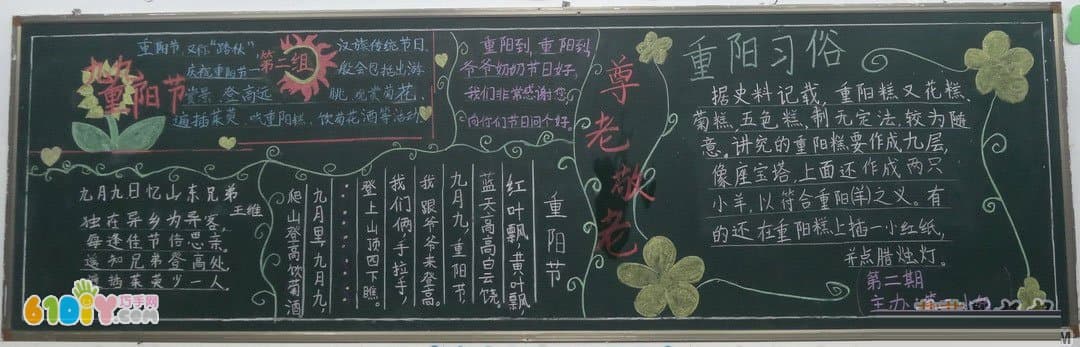 重阳节
第二组
重阳节,又称"踏秋"
汉族传统节日。
庆祝重阳节一
般会包括出游
赏景、登高远
眺、观赏菊花、
遍插茱萸、吃重阳糕、饮菊花酒等活动
重阳到,重阳到,
爷爷奶奶节日好,
我们非常感谢您,
向你们节日问个好。
尊老敬老
重阳习俗
据史料记载,重阳糕又花糕、
菊糕,五色糕,制无定法,较为随
意。讲究的重阳糕要作成九层,
像座宝塔,上面还作成两只
小羊,以符合重阳(羊)之义。有
的还在重阳糕上插一小红纸,
并点腊烛灯。
第二期
主办
九月九日忆山东兄弟
王维
独在异乡为异客,
每逢佳节倍思亲。
遥知兄弟登高处,
遍插茱萸少一人。
重阳节
红叶飘,黄叶飘,
蓝天高高白云饶。
九月九,重阳节,
我跟爷爷来登高。
我们俩手拉手,
登上山顶四下瞧。
九月里,九月九,
爬山登高饮菊酒
61DIY巧手网
.com